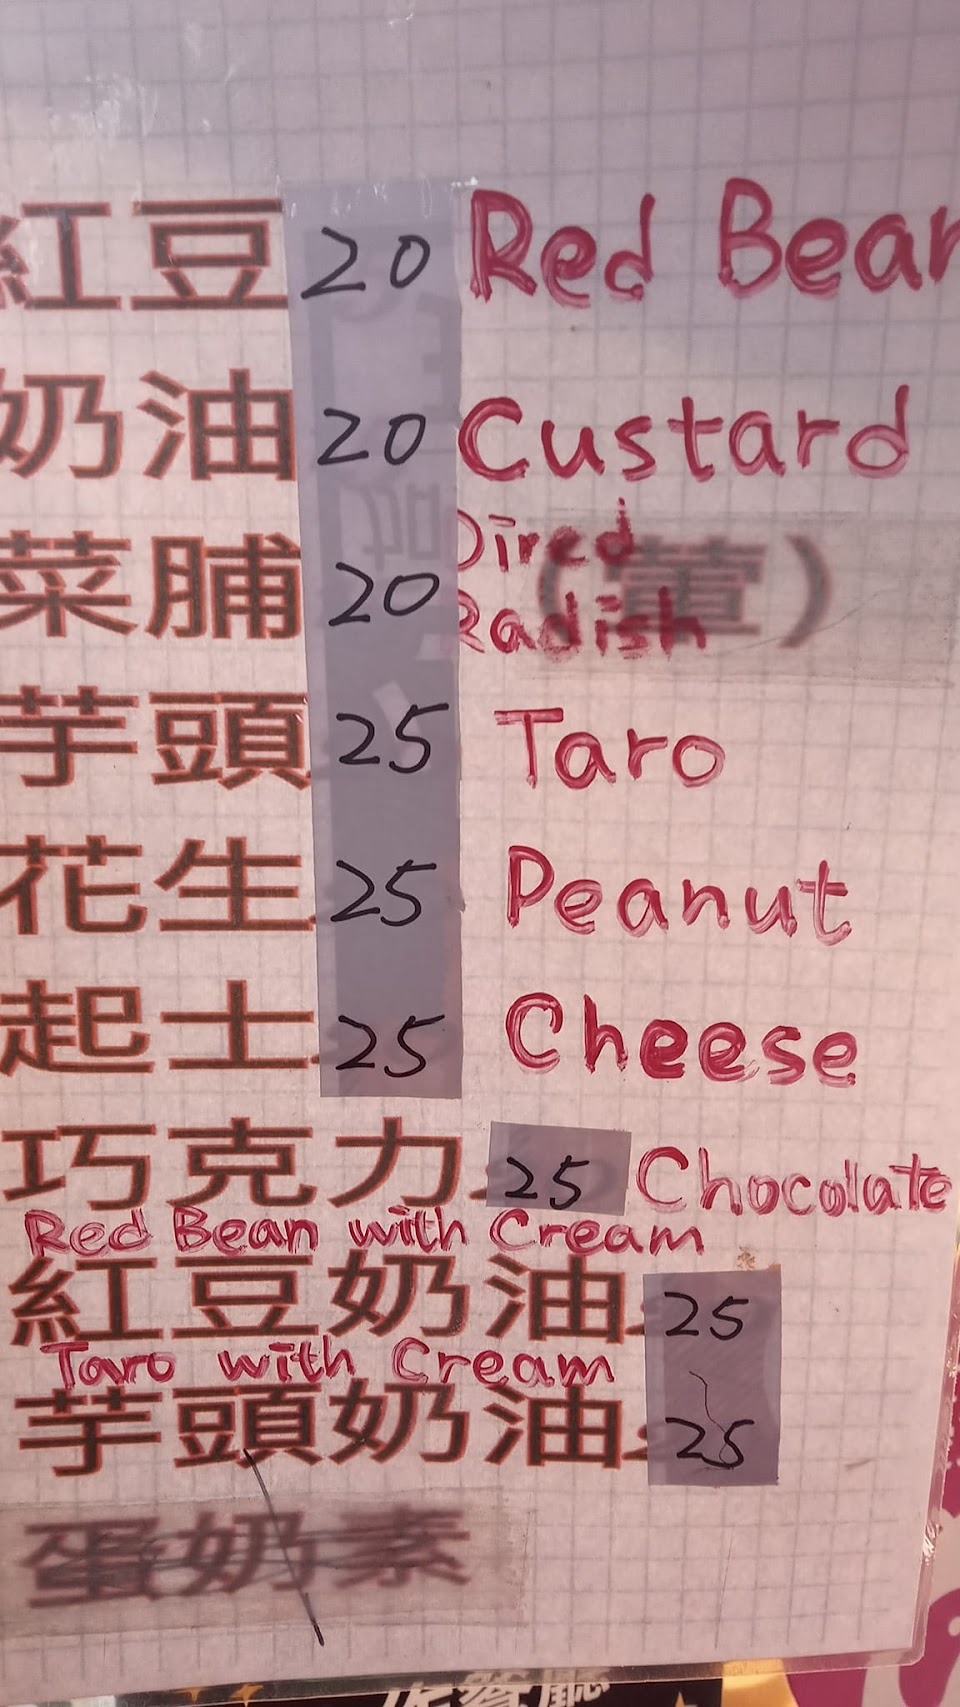 紅豆 20 Red Bean
奶油 20 Custard
菜脯 20 Dired Radish (葷)
芋頭 25 Taro
花生 25 Peanut
起士 25 Cheese
巧克力 25 Chocolate
Red Bean with Cream
紅豆奶油 25
Taro with Cream
芋頭奶油 25
蛋奶素